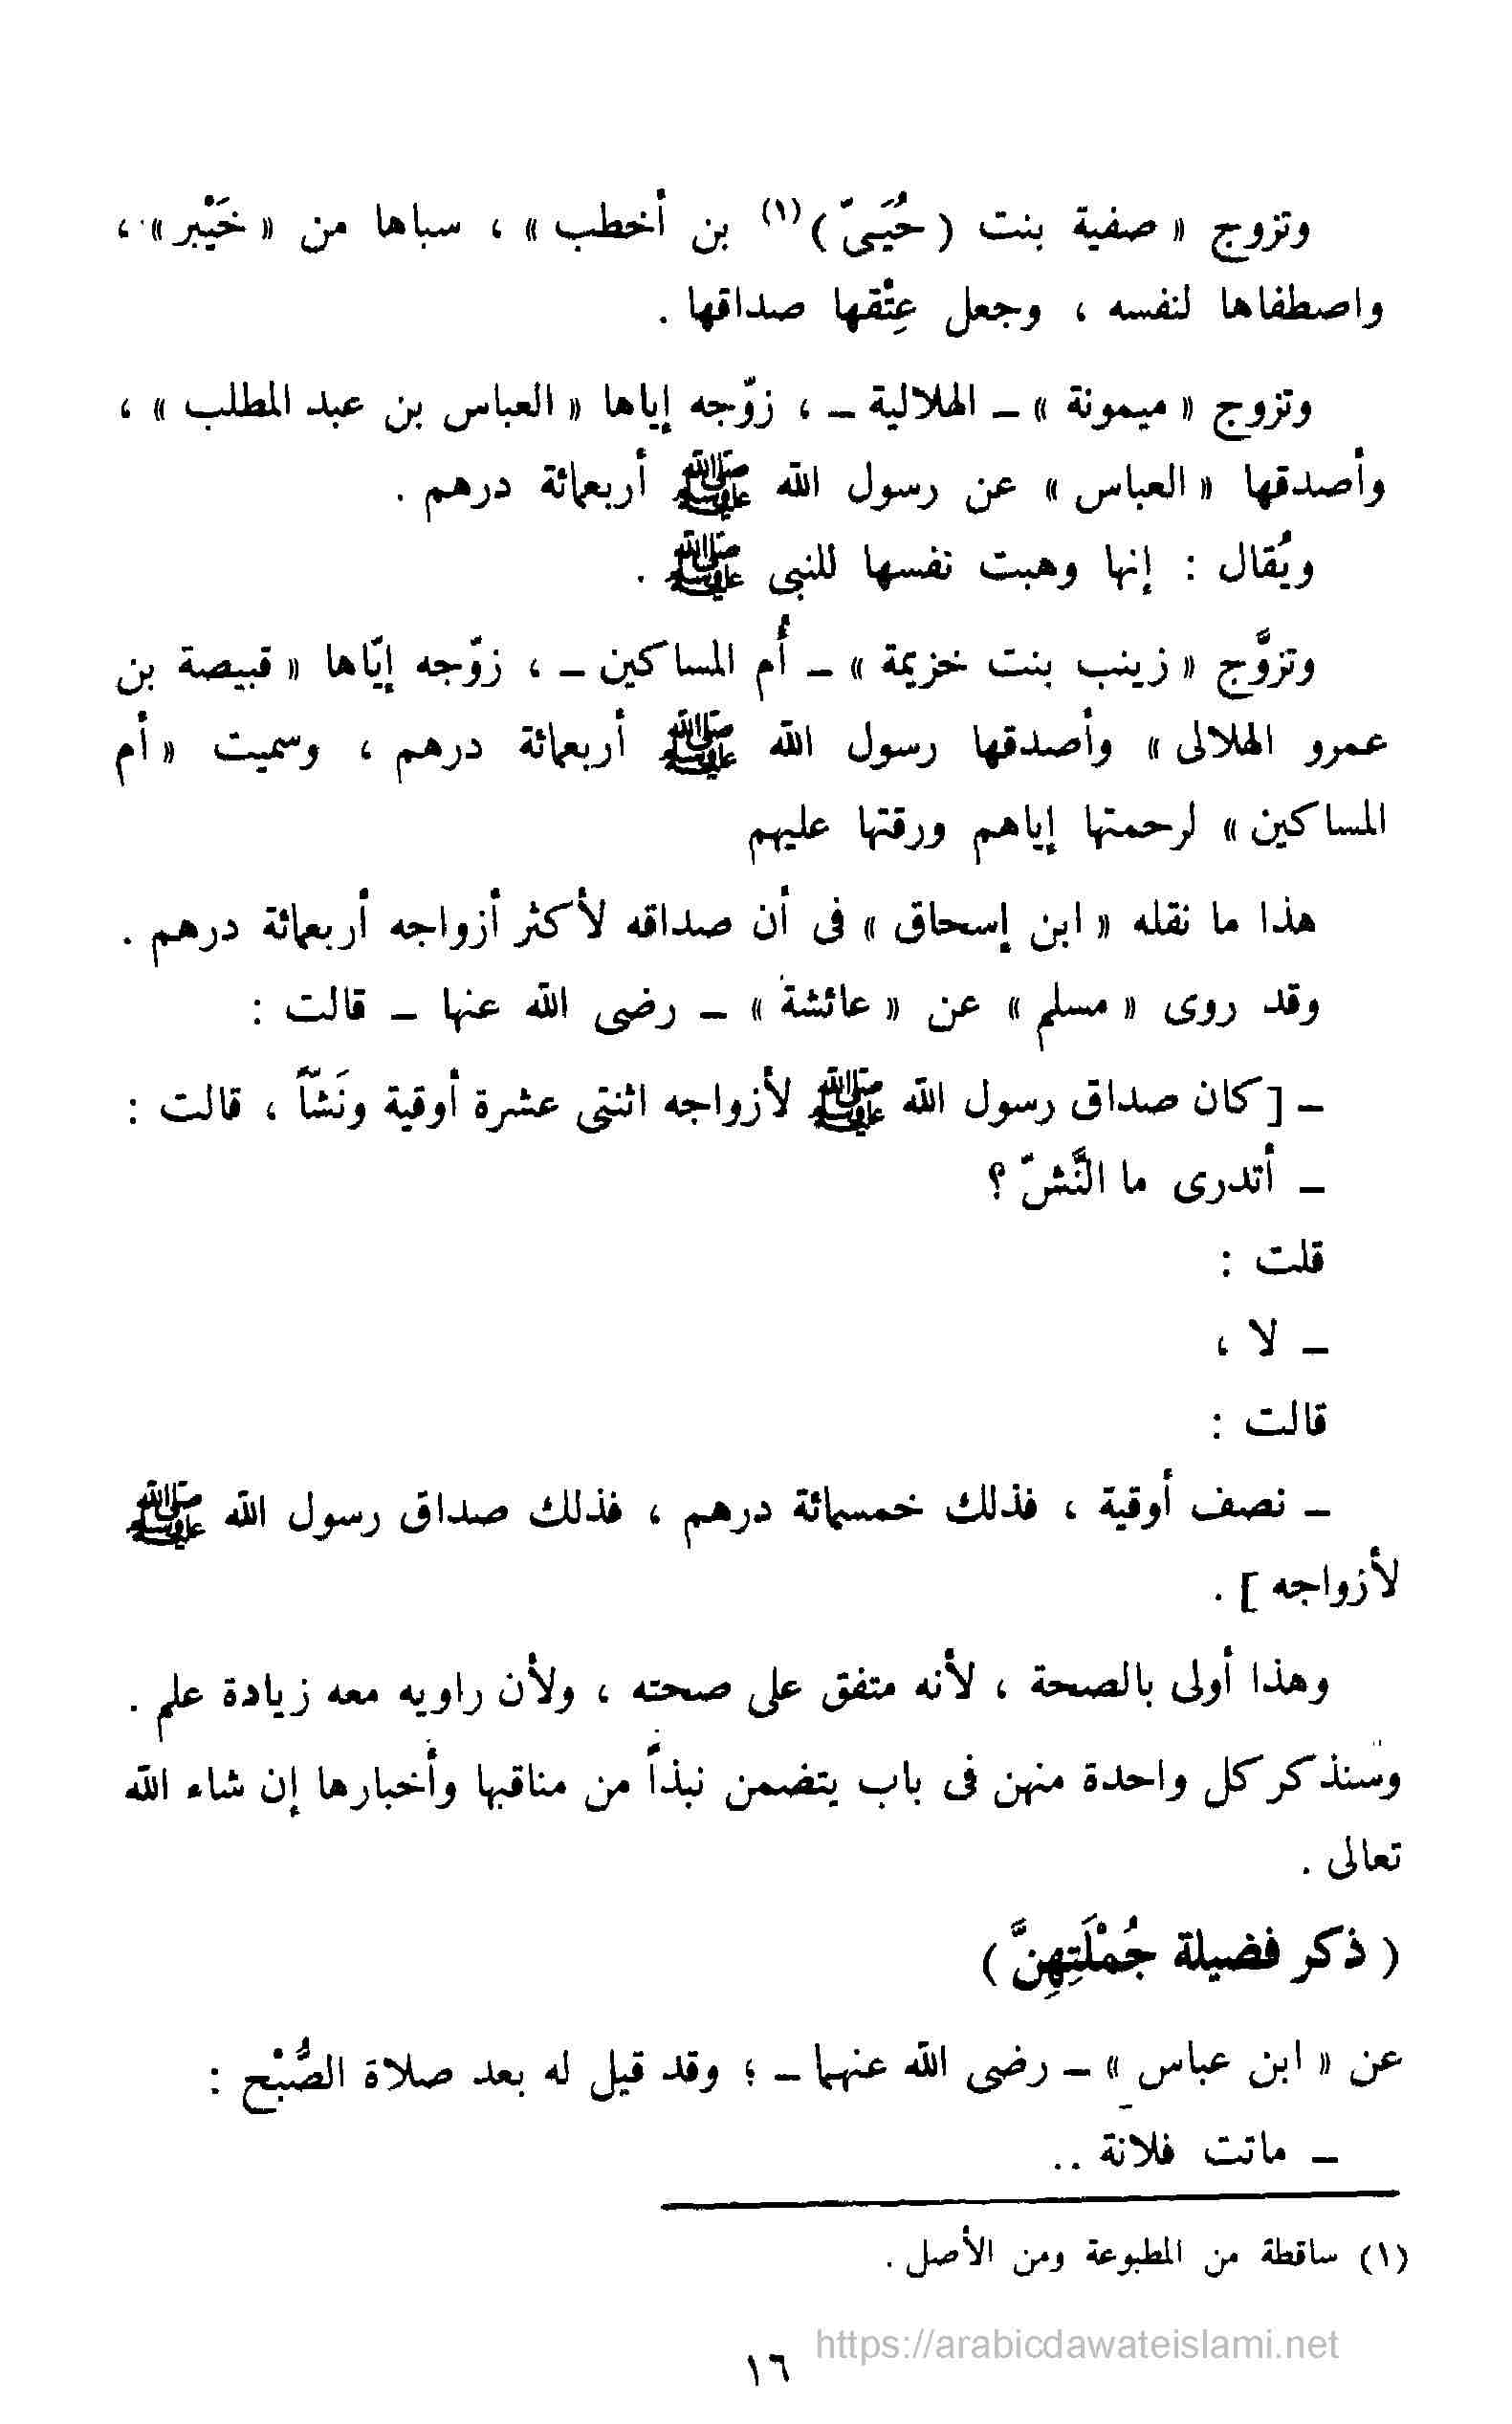 وتزوج « صفية بنت ( حُيَىّ )(١) بن أخطب » ، سباها من « خَيْبر » ،
واصطفاها لنفسه ، وجعل عِتْقها صداقها .
وتزوج « ميمونة » ـ الهلالية ـ ، زوّجه إياها « العباس بن عبد المطلب » ،
وأصدقها « العباس » عن رسول الله ﷺ أربعمائة درهم .
ويُقال : إنها وهبت نفسها للنبى ﷺ .
وتزوَّج « زينب بنت خزيمة » ـ أُم المساكين ـ ، زوّجه إيّاها « قبيصة بن
عمرو الهلالى » وأصدقها رسول الله ﷺ أربعمائة درهم ، وسميت « أم
المساكين » لرحمتها إياهم ورقتها عليهم
هذا ما نقله « ابن إسحاق » فى أن صداقه لأكثر أزواجه أربعمائة درهم .
وقد روى « مسلم » عن « عائشة » ـ رضى الله عنها ـ قالت :
ـ [ كان صداق رسول الله ﷺ لأزواجه اثنتى عشرة أوقية ونَشّاً ، قالت :
ـ أتدرى ما النَّشّ ؟
قلت :
ـ لا ،
قالت :
ـ نصف أوقية ، فذلك خمسمائة درهم ، فذلك صداق رسول الله ﷺ
لأزواجه ] .
وهذا أولى بالصحة ، لأنه متفق على صحته ، ولأن راويه معه زيادة علم .
وسنذكر كل واحدة منهن فى باب يتضمن نبذاً من مناقبها وأخبارها إن شاء الله
تعالى .
( ذكر فضيلة جُمْلَتِهِنَّ )
عن « ابن عباس » ـ رضى الله عنهما ـ ؛ وقد قيل له بعد صلاة الصُّبْح :
ـ ماتت فلانة ..
(١) ساقطة من المطبوعة ومن الأصل .
https://arabicdawateislami.net
١٦